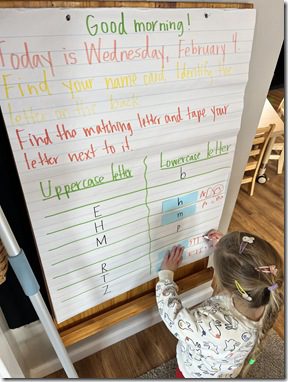 Good morning!
Today is Wednesday, February 4.
Find your name card. Identify the
letter on the back
Find the matching letter and tape your
letter next to it.
Uppercase letter Lowercase letter
b
E h
H m
M p
R
T
Z